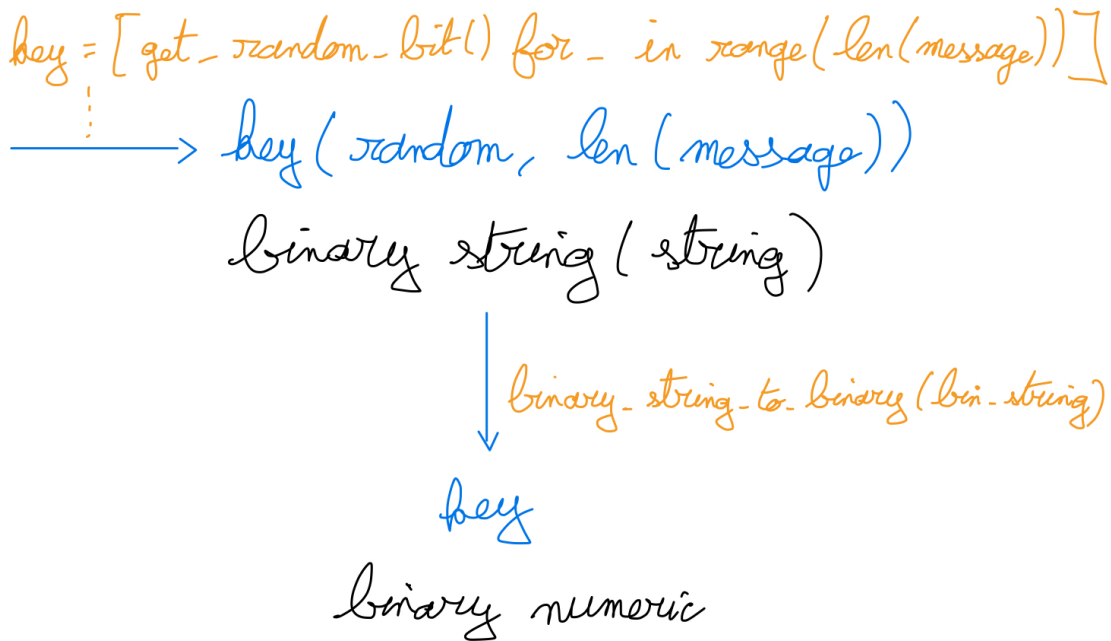 key = [get_random_bit() for _ in range(len(message))]
key(random, len(message))
binary string(string)
binary_string_to_binary(bin_string)
key
binary numeric